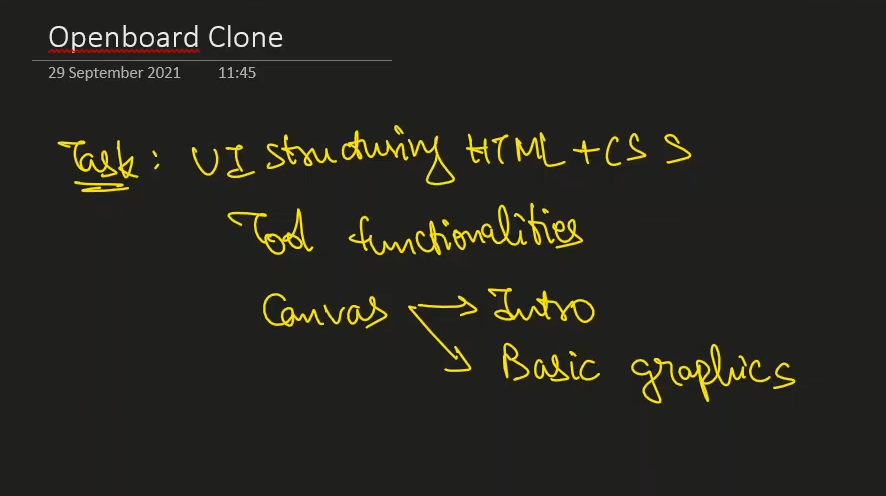 Openboard Clone
29 September 2021 11:45
Task: UI structuring HTML + CSS
Tool functionalities
Canvas → Intro
→ Basic graphics